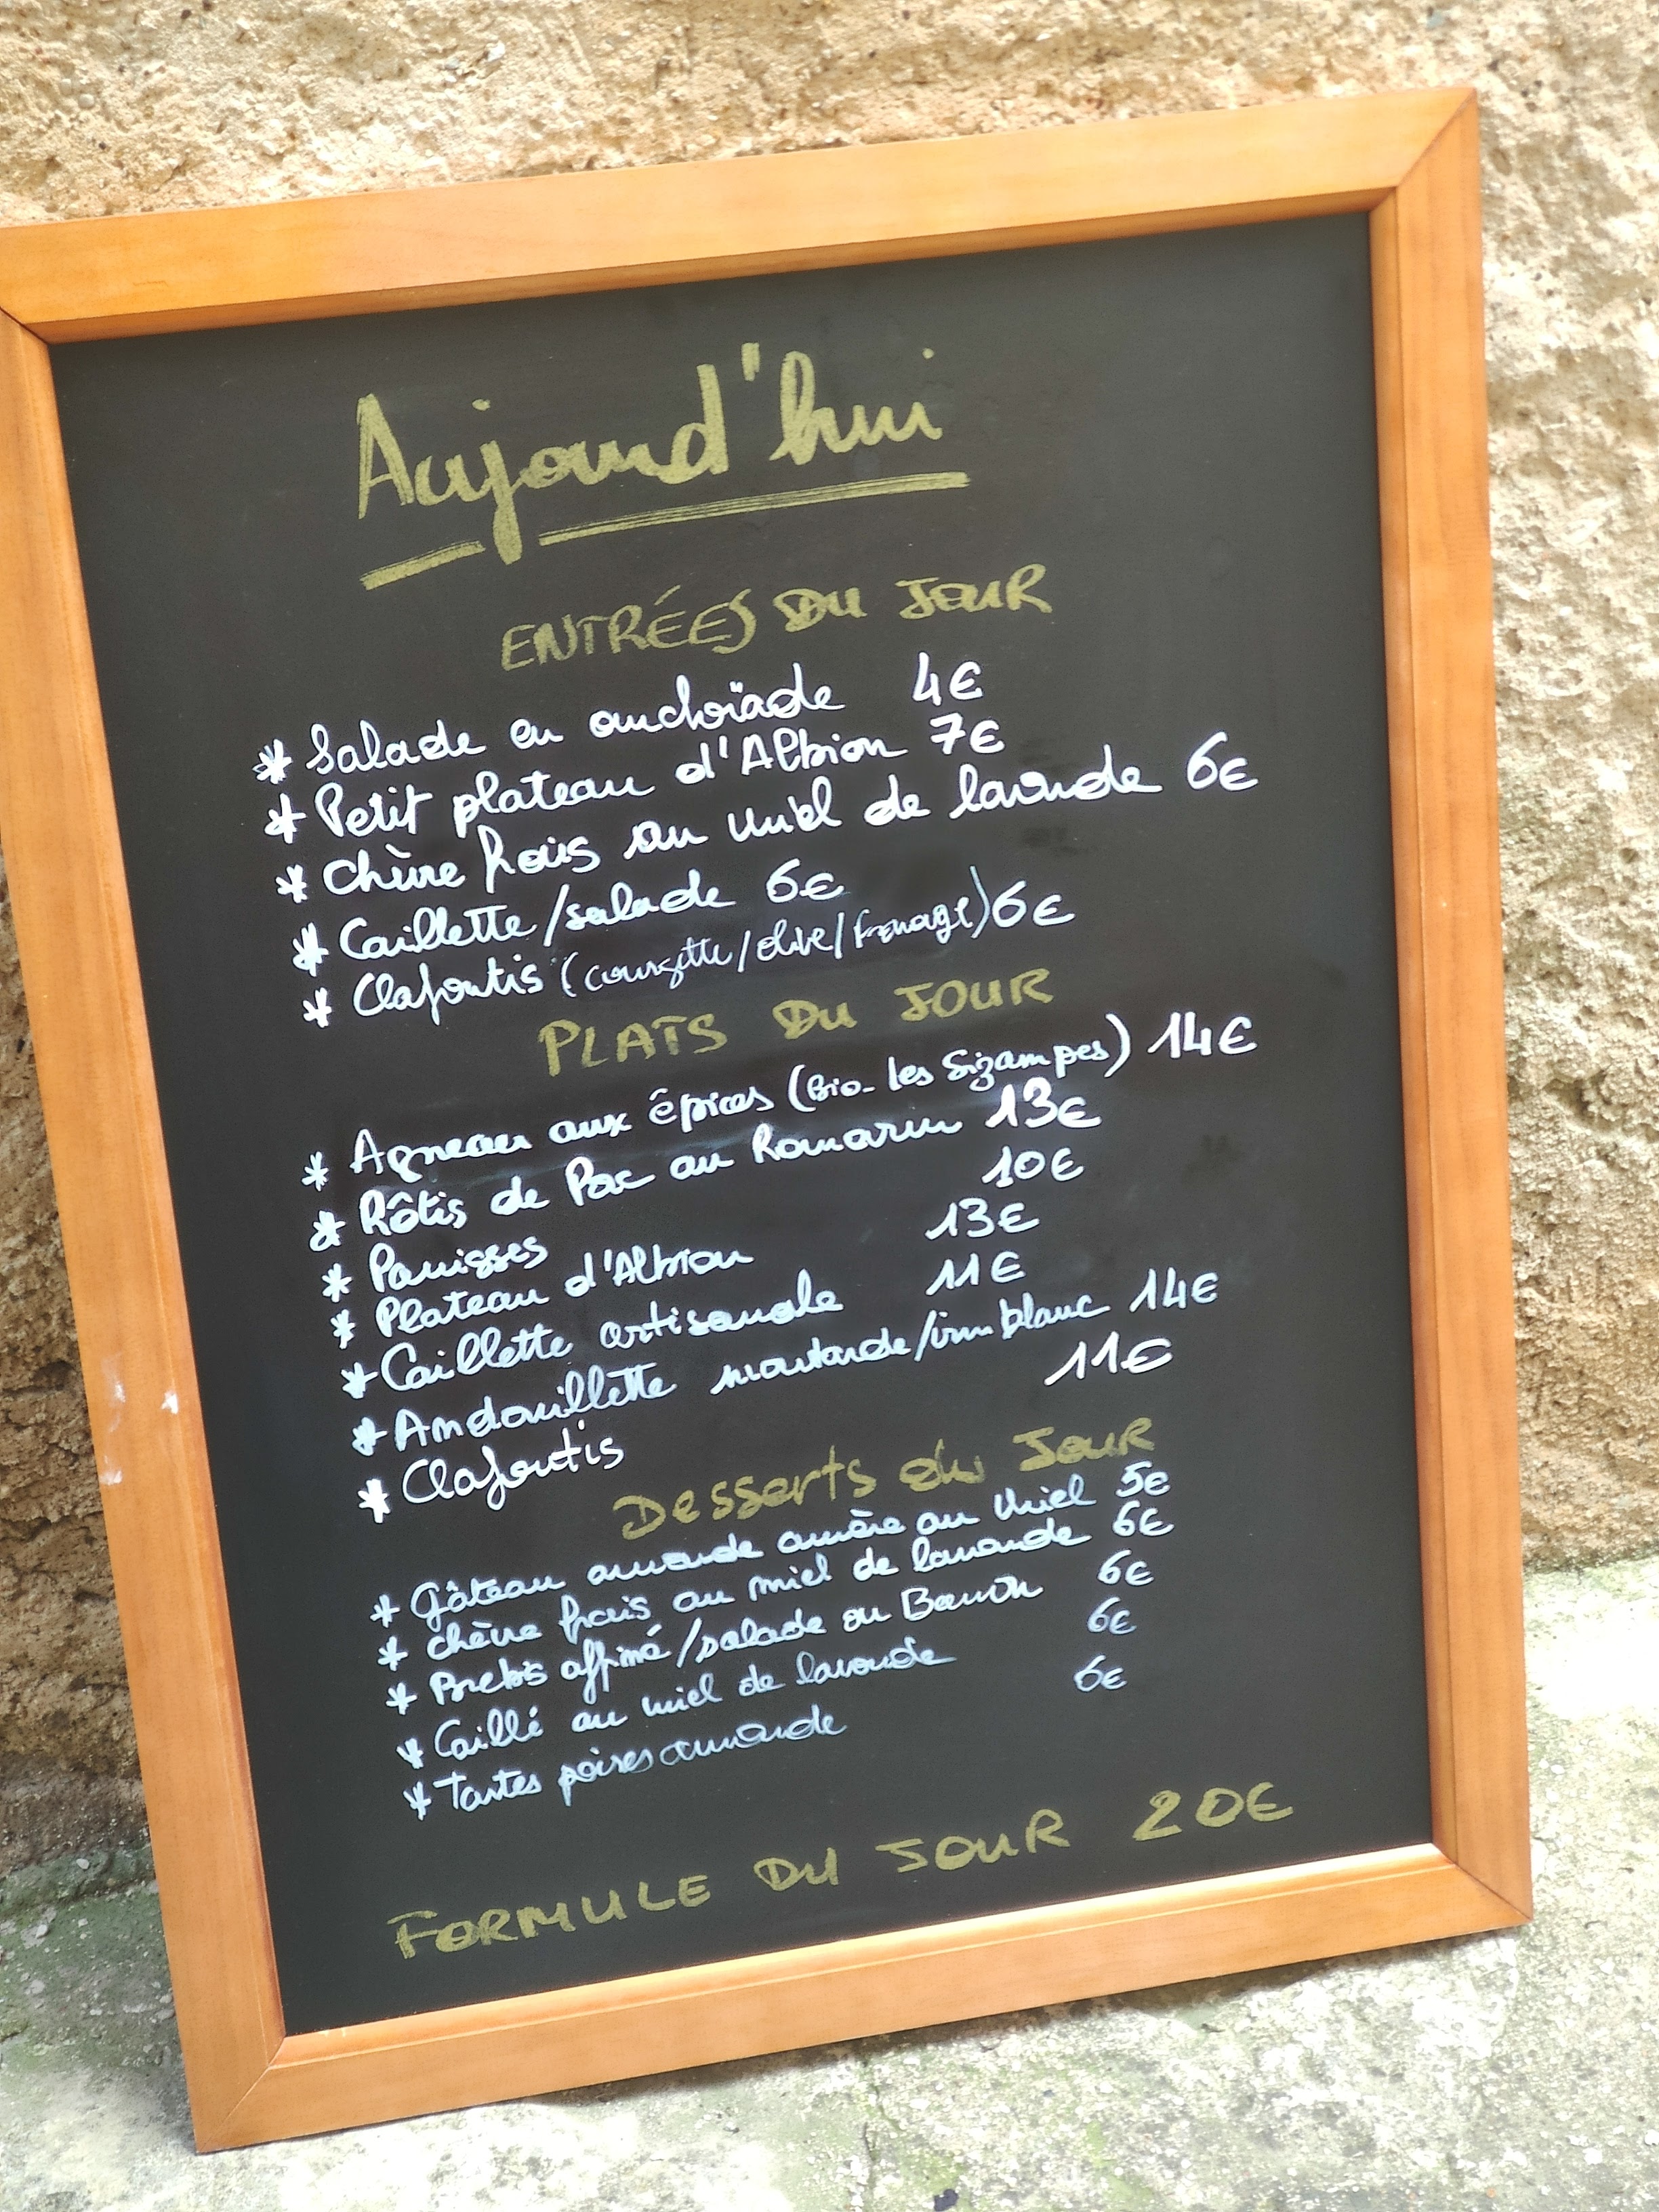 Aujourd'hui
ENTRÉES DU JOUR
* Salade en anchoïade 4€
* Petit plateau d'Albion 7€
* Chèvre frais au miel de lavande 6€
* Caillette/salade 6€
* Clafoutis (courgette/olive/fromage) 6€
PLATS DU JOUR
* Agneau aux épices (Bio- les Sizampes) 14€
* Rôtis de Porc au Romarin 13€
* Panisses 10€
* Plateau d'Albion 13€
* Caillette artisanale 11€
* Andouillette moutarde/vin blanc 14€
* Clafoutis 11€
Desserts du Jour
* Gâteau amande amère au Miel 5€
* Chèvre frais au miel de lavande 6€
* Brebis affiné/salade ou Banon 6€
* Caillé au miel de lavande 6€
* Tartes poires amande 6€
FORMULE DU JOUR 20€